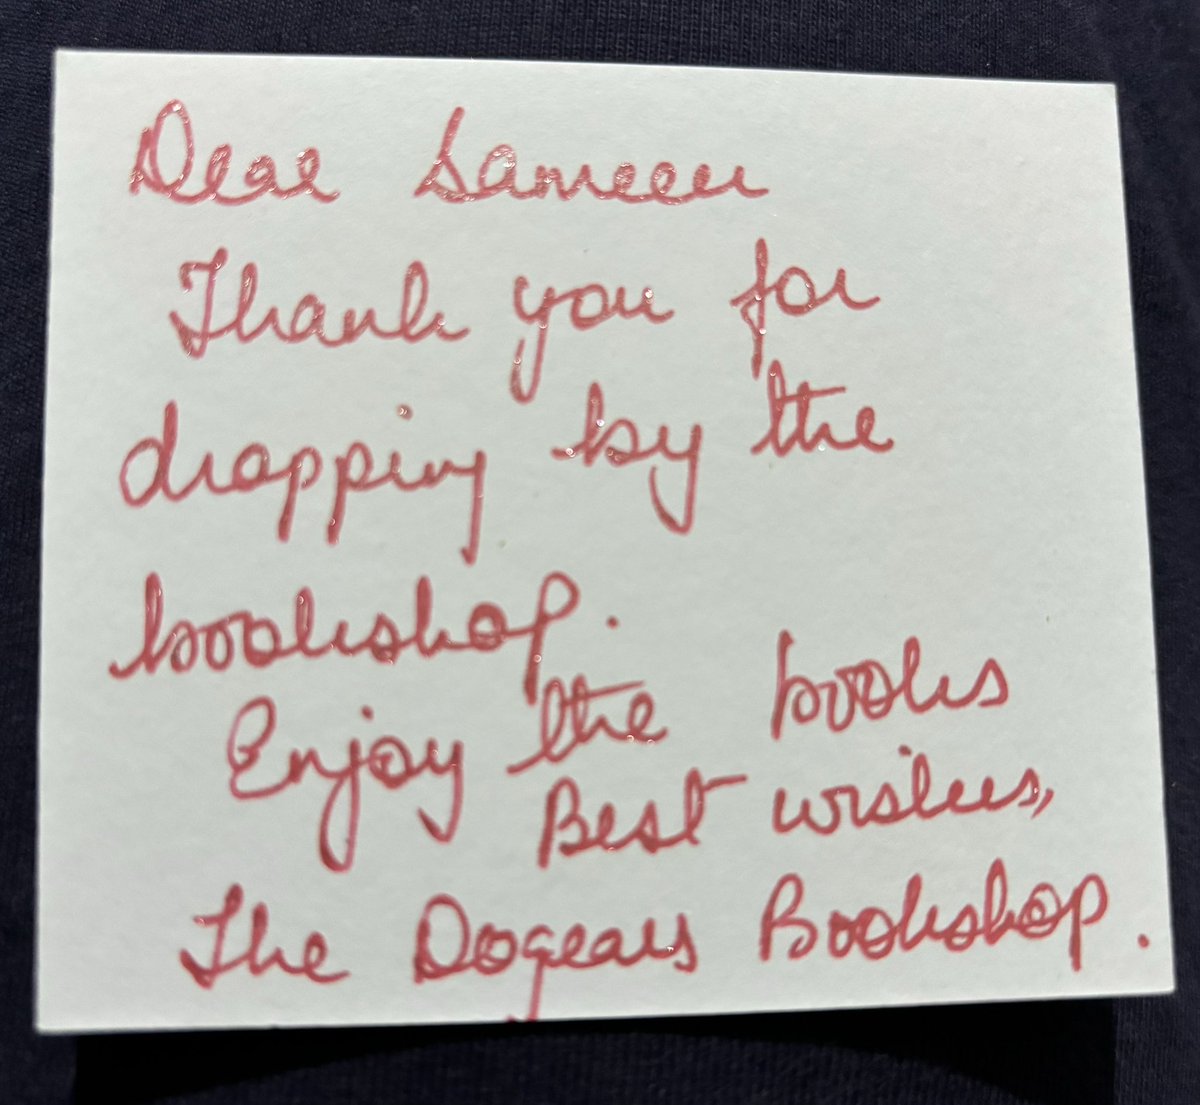 Dear Sameer
Thank you for
dropping by the
bookshop.
Enjoy the books
Best wishes,
The Dogears Bookshop.